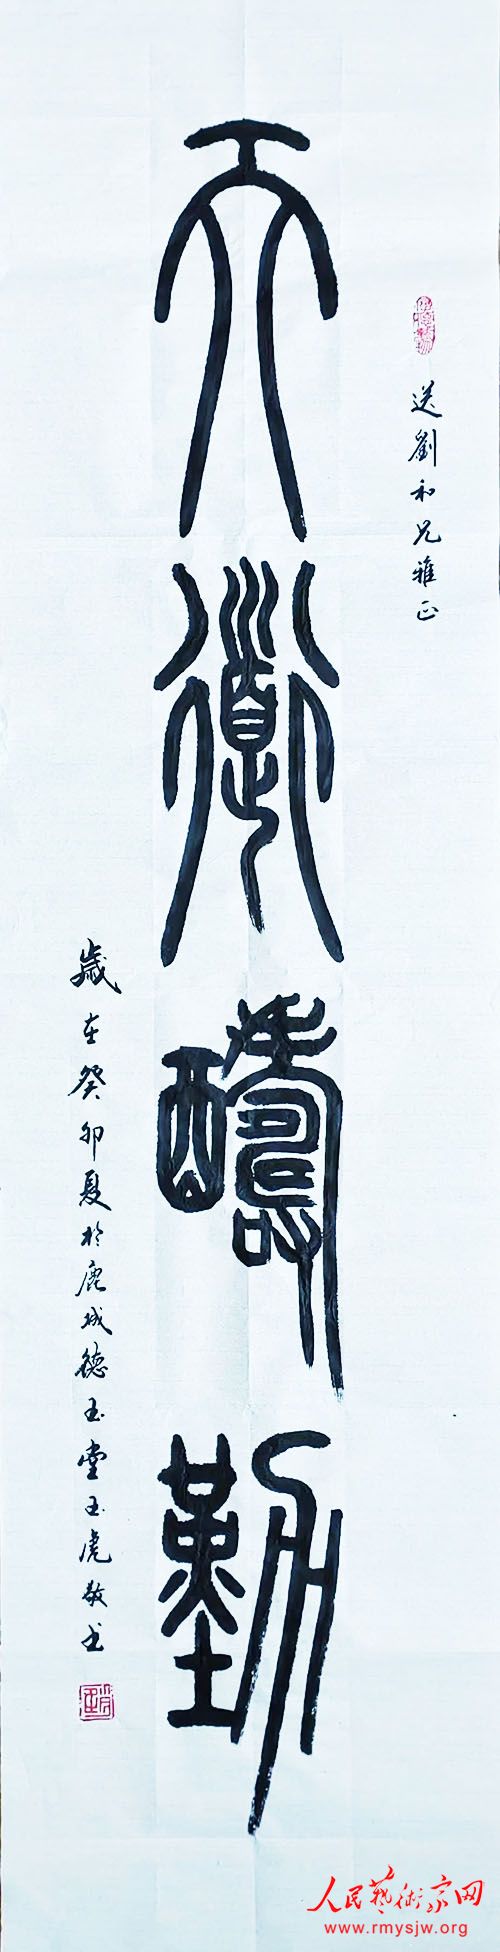 送劉和兄雅正
天道醻勤
歲在癸卯夏於鹿城德玉堂玉虎敬书
人民藝術家网
www.rmysjw.org